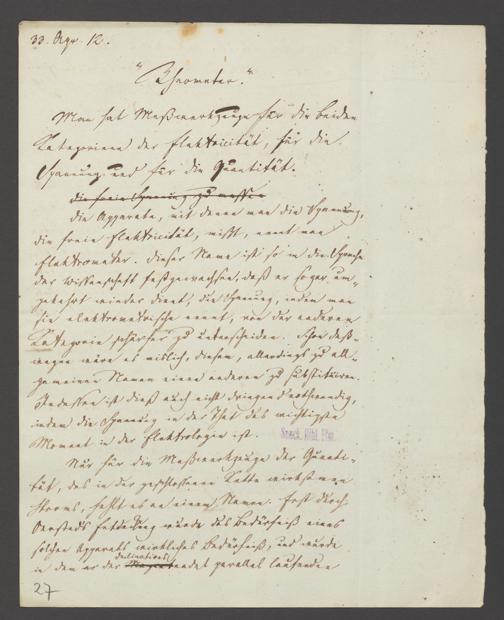 33. Apr. 12.
"Rheometer."
Man hat Meßwerkzeuge für die beiden
Kategorieen der Elektricität, für die
Spannung und für die Quantität.
die freie Spannung zu messen
die Apparate, mit denen man die Spannung,
die freie Elektricität, mißt, nennt man
Elektrometer. Dieser Name ist so in die Sprache
der Wissenschaft festgewachsen, daß er sogar um-
gekehrt wieder dient, die Spannung, indem man
sie elektrometrische nennt, von der anderen
Kategorie schärfer zu unterscheiden. Schon deß-
wegen wäre es mislich, diesem, allerdings zu all-
gemeinen Namen einen anderen zu substituiren.
Indessen ist dieß auch nicht dringend nothwendig,
indem die Spannung in der That das wichtigste
Moment in der Elektrologie ist.
Nur für die Meßwerkzeuge der Quanti-
tät, des in der geschlossenen Kette wirksamen
Stroms, fehlt es an einem Namen. Erst durch
Oersteds Entdeckung wurde das Bedürfniß eines
solchen Apparats wirkliches Bedürfniß, und wurde
declinations
in dem an der Magnetnadel parallel laufenden
27